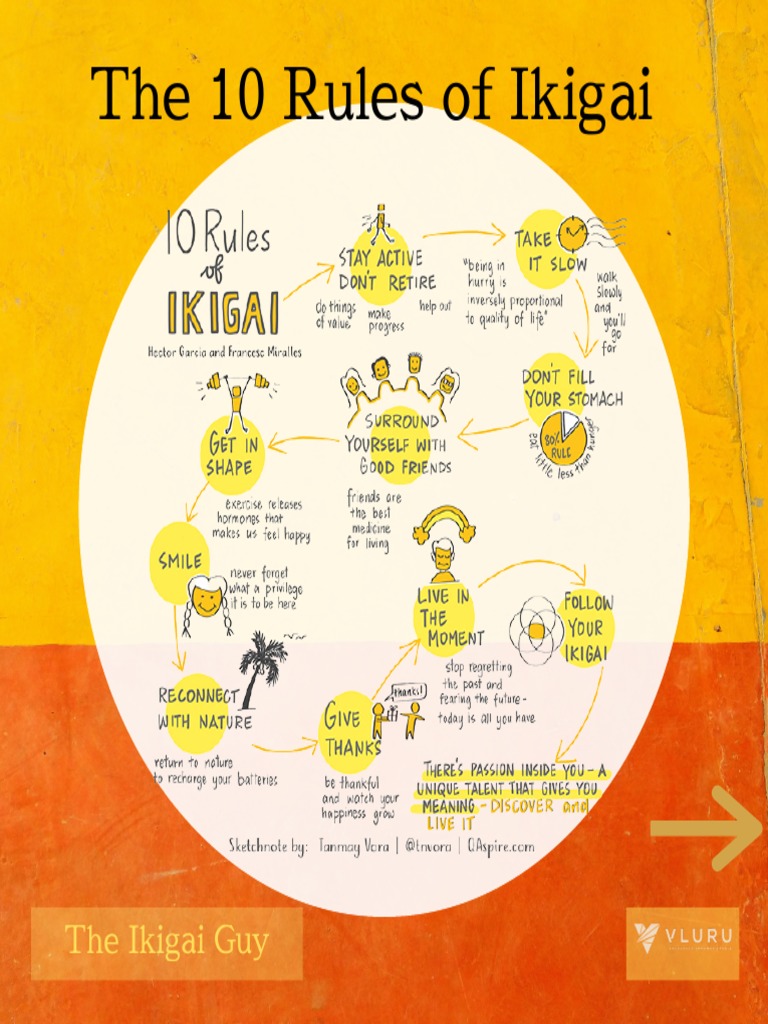 The 10 Rules of Ikigai
10 Rules
of
IKIGAI
Hector Garcia and Francesc Miralles
STAY ACTIVE
DON'T RETIRE
do things
of value
make
progress
help out
TAKE
IT SLOW
"being in
hurry is
inversely proportional
to quality of life"
walk
slowly
and
you'll
go
far
DON'T FILL
YOUR STOMACH
80%
RULE
eat little less than hunger
SURROUND
YOURSELF WITH
GOOD FRIENDS
friends are
the best
medicine
for living
GET IN
SHAPE
exercise releases
hormones that
makes us feel happy
SMILE
never forget
what a privilege
it is to be here
RECONNECT
WITH NATURE
return to nature
to recharge your batteries
GIVE
THANKS
thanks!
be thankful
and watch your
happiness grow
LIVE IN
THE
MOMENT
stop regretting
the past and
fearing the future -
today is all you have
FOLLOW
YOUR
IKIGAI
THERE'S PASSION INSIDE YOU - A
UNIQUE TALENT THAT GIVES YOU
MEANING - DISCOVER and
LIVE IT
Sketchnote by: Tanmay Vora | @tnvora | QAspire.com
The Ikigai Guy
VLURU